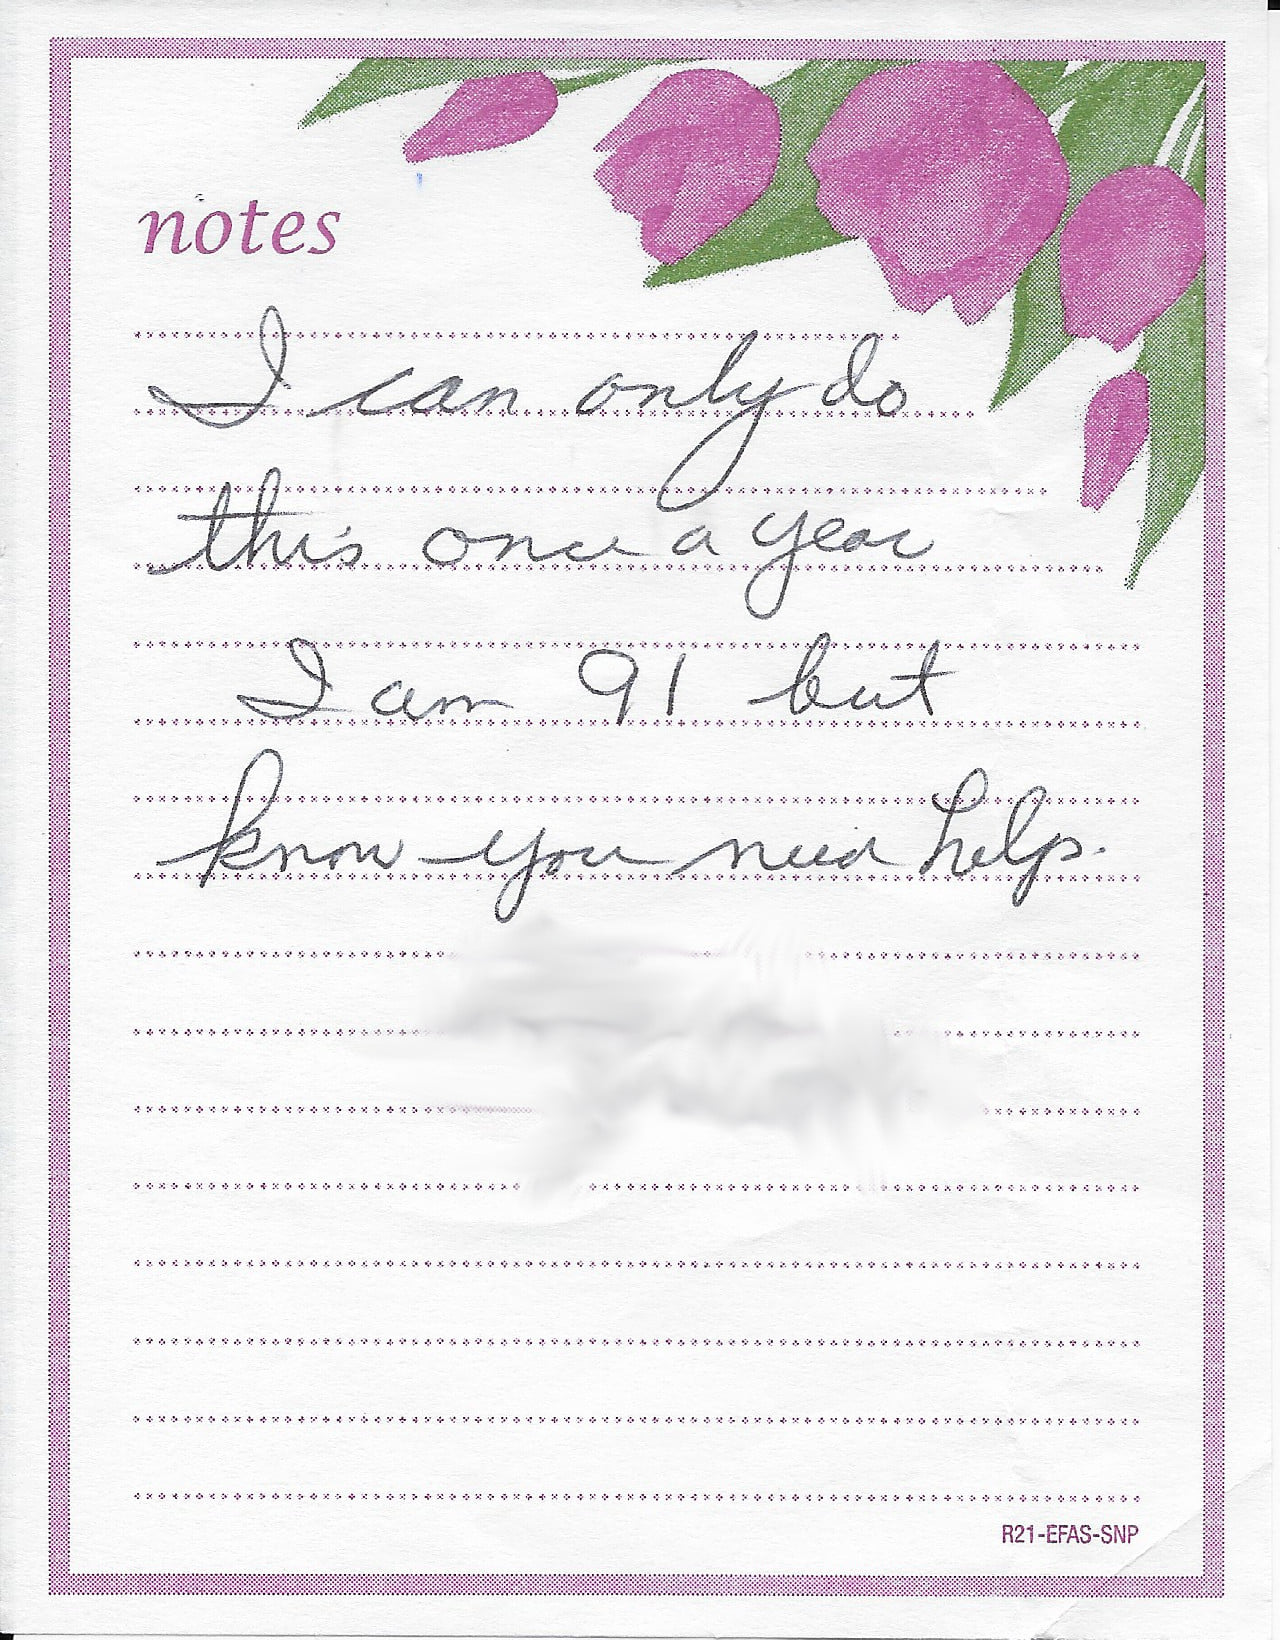 notes
I can only do
this once a year
I am 91 but
know you need help.
R21-EFAS-SNP